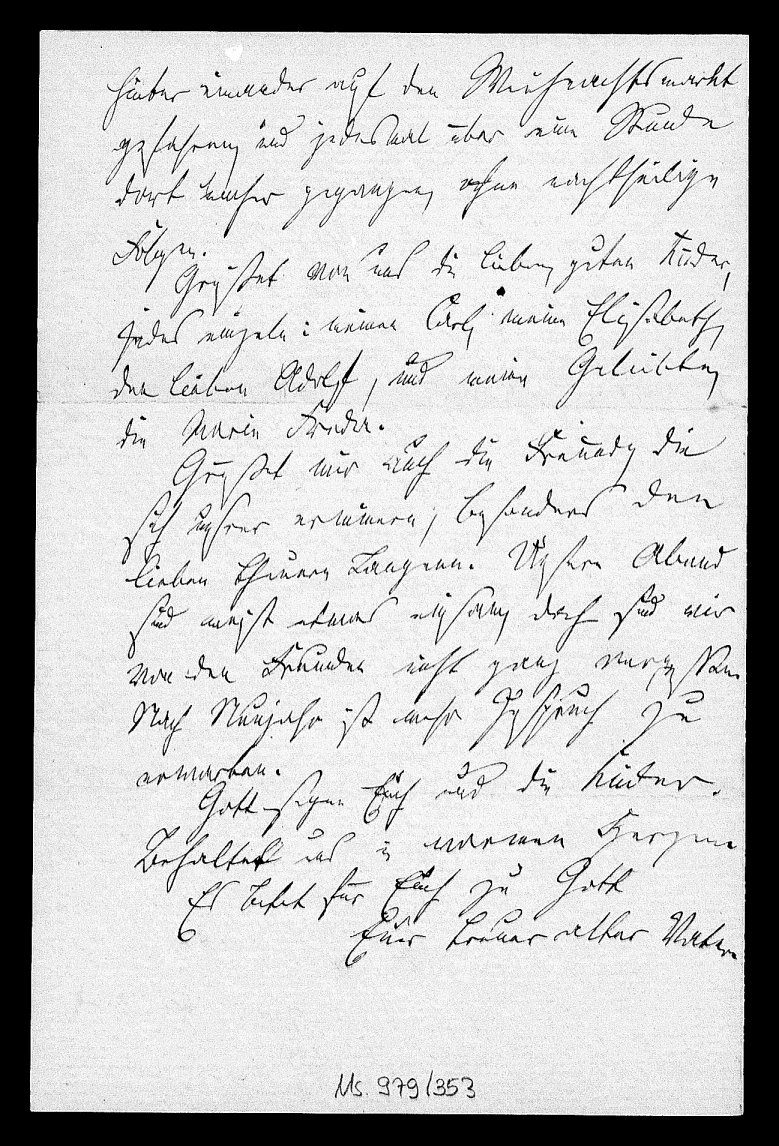 hinter einander auf den Weihnachtsmarkt
gefahren, und jedesmal über eine Stunde
dort umher gegangen, ohne nachtheilige
Folgen.
Grüßet von uns die lieben, guten Kinder,
jedes einzeln: meinen Carl, meine Elisabeth,
den lieben Adolf, und meine Geliebte,
die Maria Frieda.
Grüßet mir auch die Freunde, die
sich unsrer erinnern, besonders den
lieben theuern Langenn. Unsere Abende
sind meist etwas einsam, doch sind wir
von den Freunden nicht ganz vergessen.
Nach Neujahr ist mehr Zuspruch zu
erwarten.
Gott segne Euch und die Kinder.
Behaltet uns in warmen Herzen.
Es betet für Euch zu Gott
Euer treuer alter Vater.
Ms. 979/353